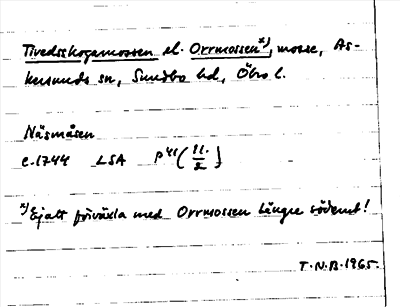 Tivedsskogamossen el. Orrmossen x), mosse, As-
kersunds sn, Sundbo hd, Öbro l.
Näsmåsen
c. 1744 LSA P 41 (11./2)
x) Ej att förväxla med Orrmossen längre söderut!
T.N.B. 1965.